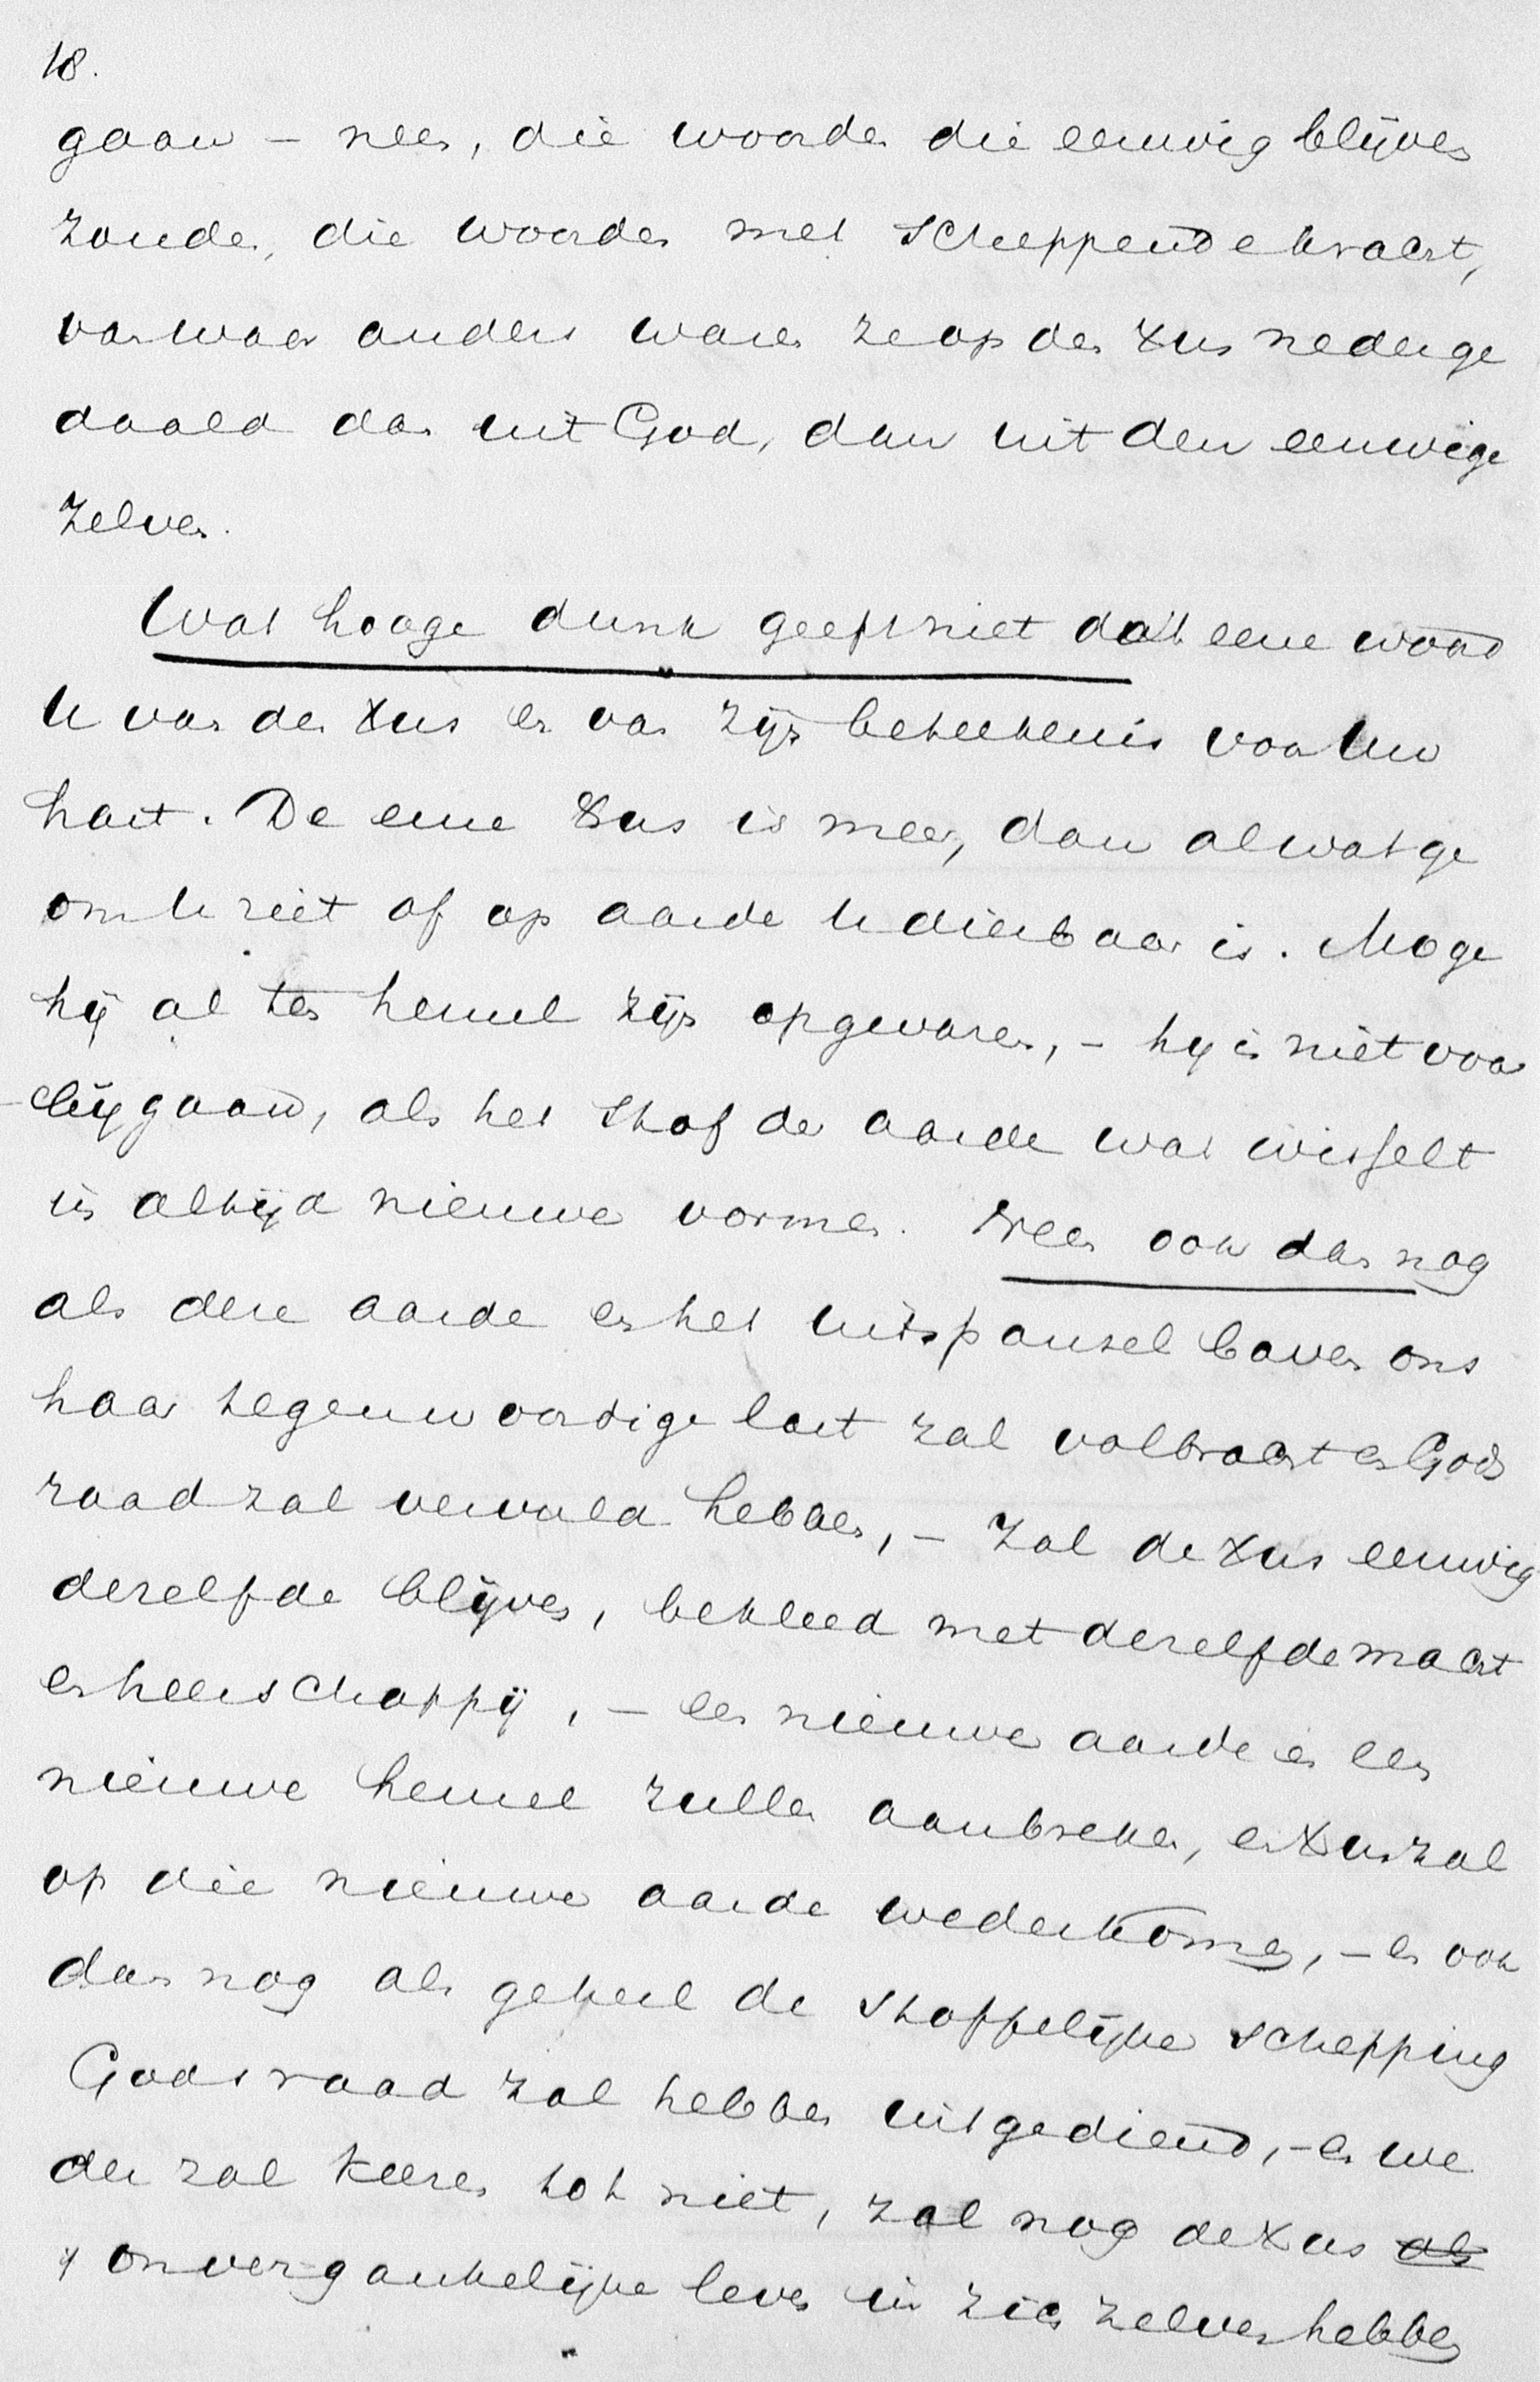 18.
gaan – neen, die woorden die eeuwig blijven
zouden, die woorden met scheppende kracht,
van waar anders waren ze op den Xus nederge
daald dan uit God, dan uit den eeuwige
zelven.
Wat hooge dunk geeft niet dat eene woord
U van den Xus en van zijn beteekenis voor Uw
hart. De eene Xus is meer, dan al wat ge
om U ziet of op aarde U dierbaar is. Moge
hij al ten hemel zijn opgevaren, – hij is niet voor
–bijgaan, als het stof der aarde wat wisselt
in altijd nieuwe vormen. Neen ook dan nog
als deze aarde en het uitspansel boven ons
haar tegenwoordige last zal volbracht en Gods
raad zal vervuld hebben, – zal de Xus eeuwig
dezelfde blijven, bekleed met dezelfde macht
en heerschappij, – een nieuwe aarde en een
nieuwe hemel zullen aanbreken, en Xus zal
op die nieuwe aarde wederkomen, – en ook
dan nog als geheel de stoffelijke schepping
Gods raad zal hebben uitgediend, – en we
der zal keeren tot niet, zal nog de Xus als
't onvergankelijke leven in zich zelven hebben